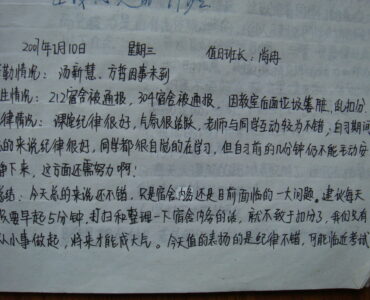 2007年1月10日 星期三 值日班长：尚冉
勤情况：汤新慧、万哲因事未到
生情况：212宿舍被通报，304宿舍被通报，因教室后面垃圾集脏，乱扣分
律情况：课堂纪律很好，气氛很活跃，老师与同学互动较为不错，自习期间
的来说纪律很好，同学都很自觉的在学习，但自习前的几分钟仍不能主动安
静下来，这方面还需努力啊！
总结：今天总的来说还不错，只是宿舍内务还是目前面临的一大问题。建议每天
早起5分钟，打扫和整理一下宿舍内务的话，就不致于扣分了，我们只有
从小事做起，将来才能成大气。今天值的表扬的是纪律不错，可能临近考试